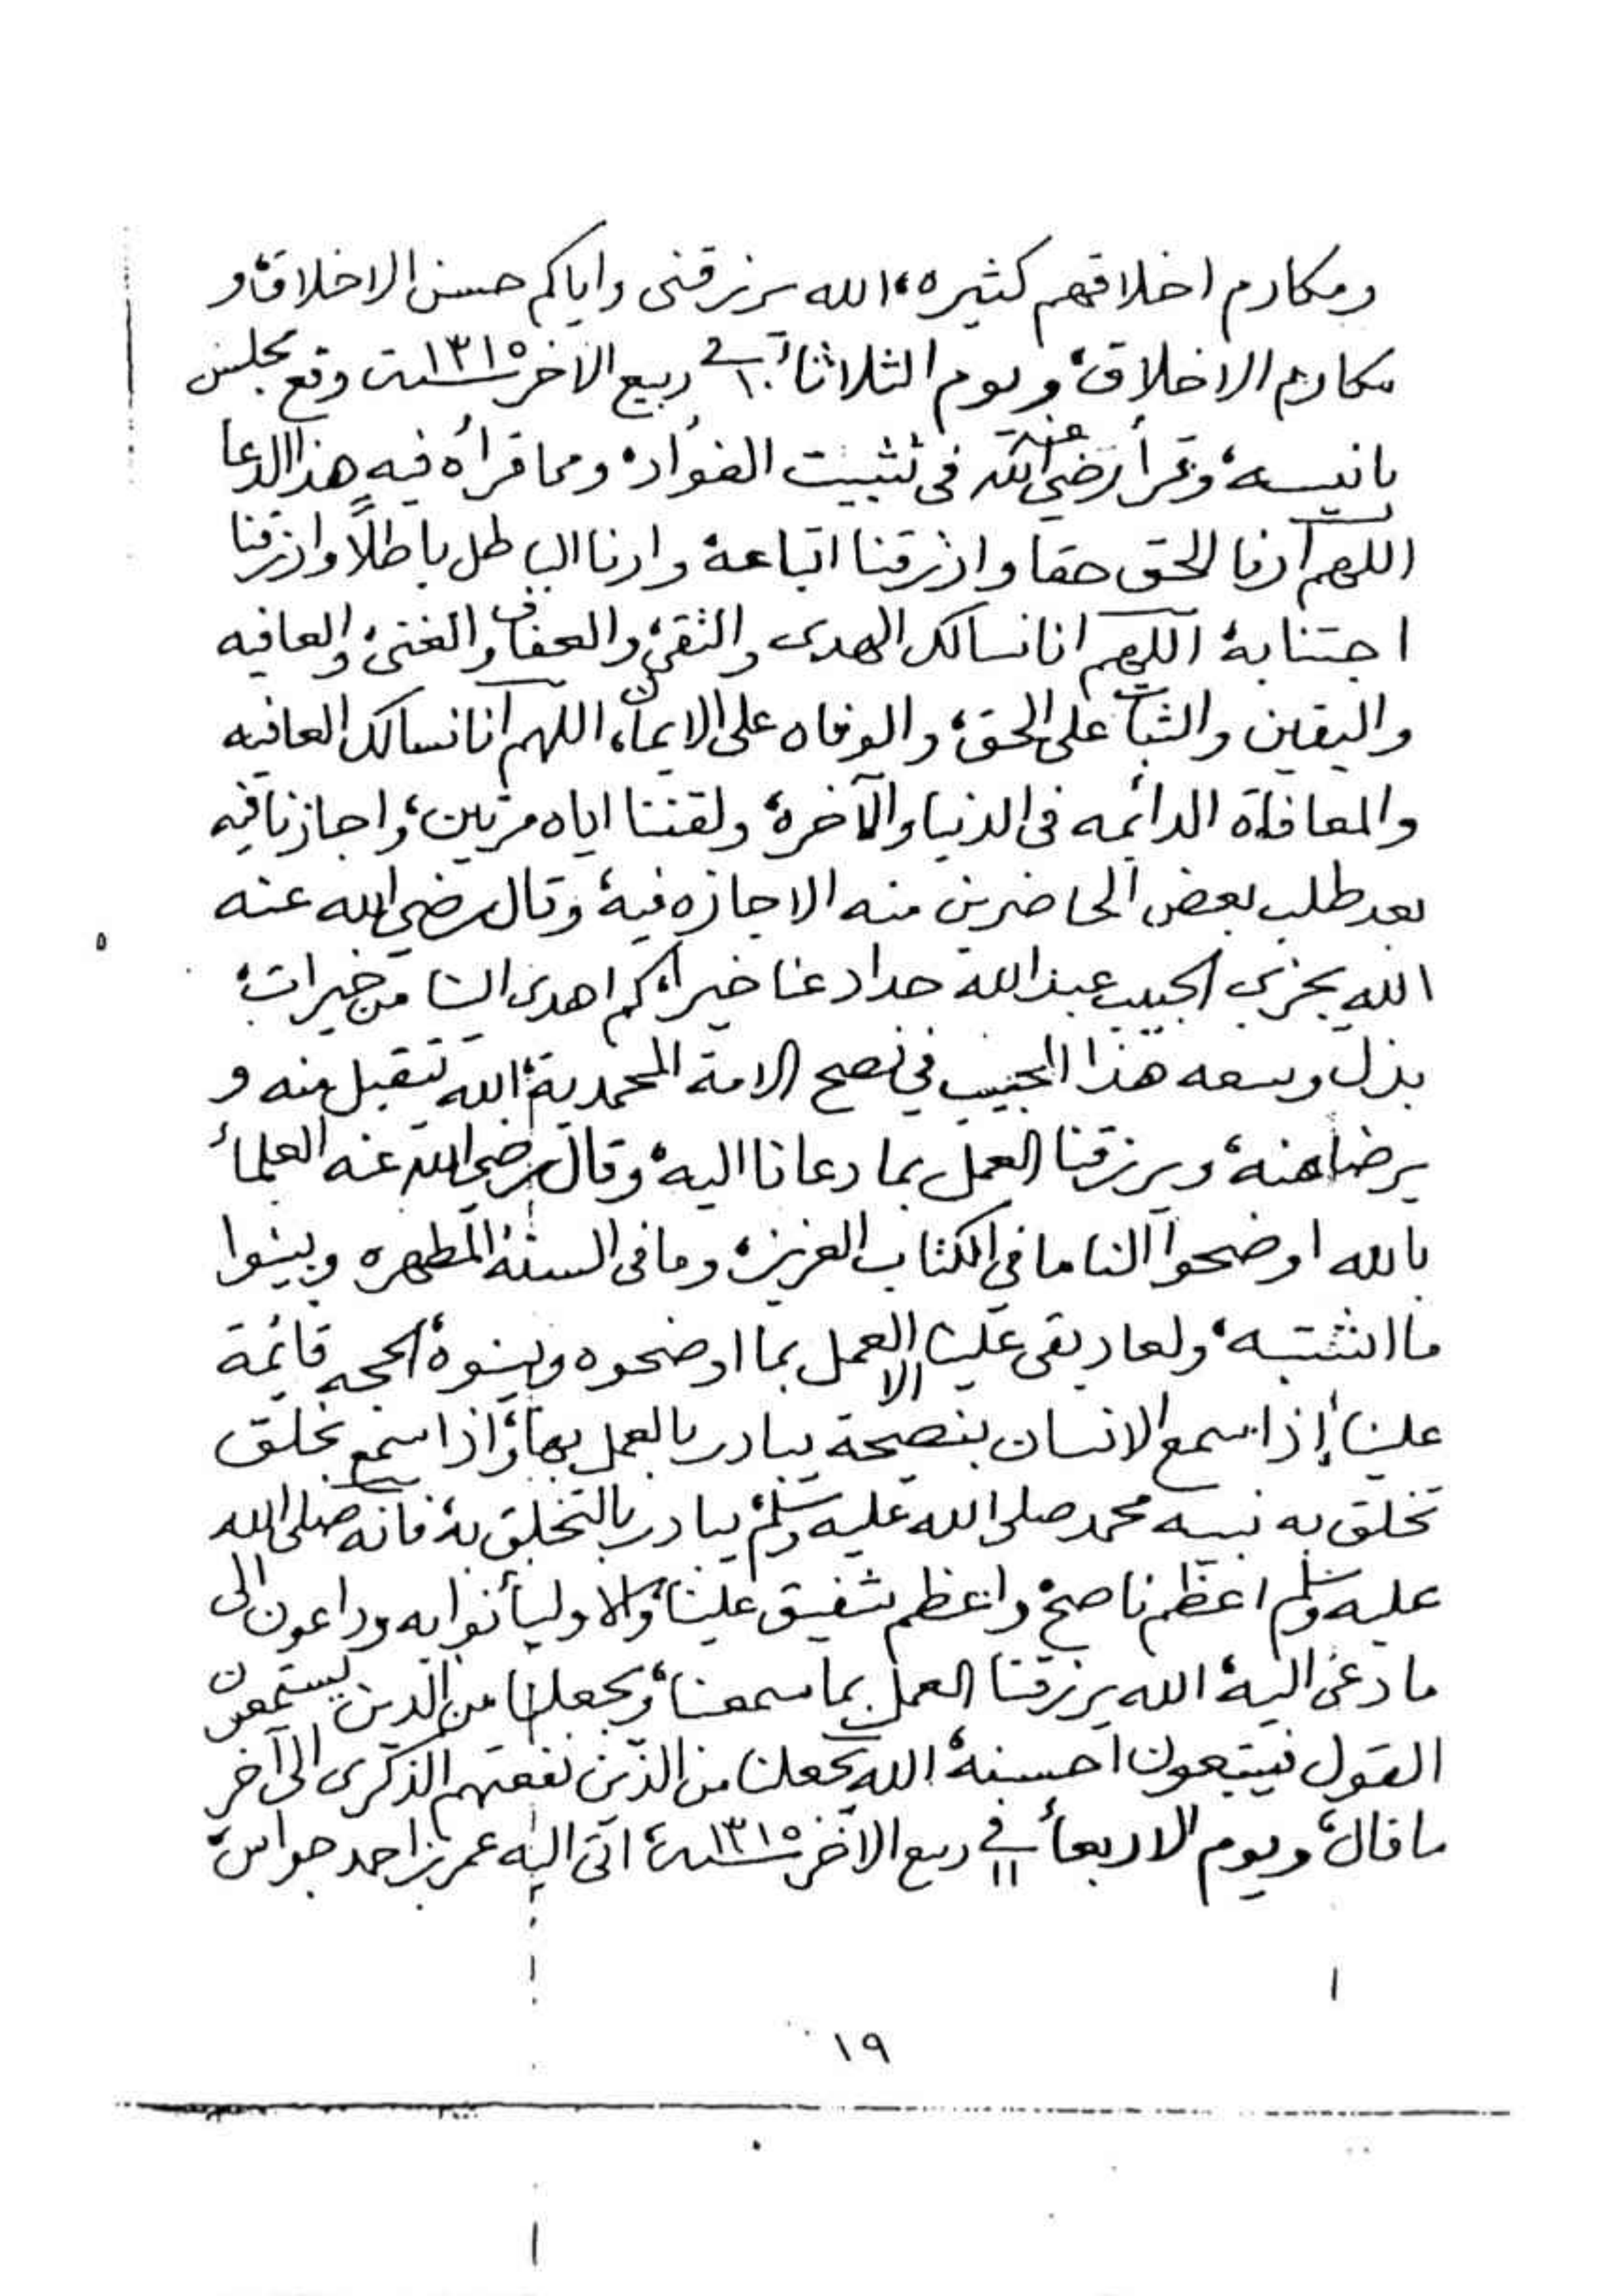 ومكارم اخلاقهم كثيره، الله يرزقنى واياكم حسن الاخلاق، و
مكارم الاخلاق، ويوم الثلاثاء ١٠ فى ربيع الاخر سنة ١٣١٥ وقع مجلس
بانيسه، وقرأ رضي الله عنه فى تثبيت الفؤاد، ومما قرأه فيه هذا الدعا
اللهم ارنا الحق حقا وارزقنا اتباعه، وارنا الباطل باطلاً وارزقنا
اجتنابه، اللهم انا نسالك الهدى والتقى، والعفاف والغنى، والعافيه
واليقين والثبات على الحق، والوفاه على الايمان، اللهم انا نسالك العافيه
والمعافاة الدائمه فى الدنيا والآخرة، ولقننا اياه مرتين، واجازنا فيه
بعد طلب بعض الحاضرين منه الاجازه فيه، وقال رضي الله عنه
الله يجزي الحبيب عبدالله حداد عنا خيرا، كم اهدى الينا من خيرات،
بذل وسعه هذا الحبيب في نصح الامة المحمدية، الله يتقبل منه و
يرضا عنه، ويرزقنا العمل بما دعانا اليه، وقال رضي الله عنه العلماء
بالله اوضحوا لنا ما في الكتاب العزيز، وما فى السنة المطهره وبينوا
ما اشتبه، ولعاد بقى علينا الا العمل بما اوضحوه وبينوه، الحجه قائمة
علينا، إذا سمع الانسان بنصيحة يبادر بالعمل بها، واذا سمع بخلق
تخلق به نبيه محمد صلى الله عليه وسلم، يبادر بالتخلق به، فانه صلى الله
عليه وسلم اعظم ناصح، واعظم شفيق علينا، والاوليأ نوابه وداعون الى
ما دعى اليه، الله يرزقنا العمل بما سمعنا، ويجعلنا من الذين يستمعون
القول فيتبعون احسنه، الله يجعلنا من الذين نفعتهم الذكرى الى آخر
ما قال، ويوم الاربعاء ١١ في ربيع الآخر سنة ١٣١٥، اتى اليه عمر بن احمد جواس،
١٩